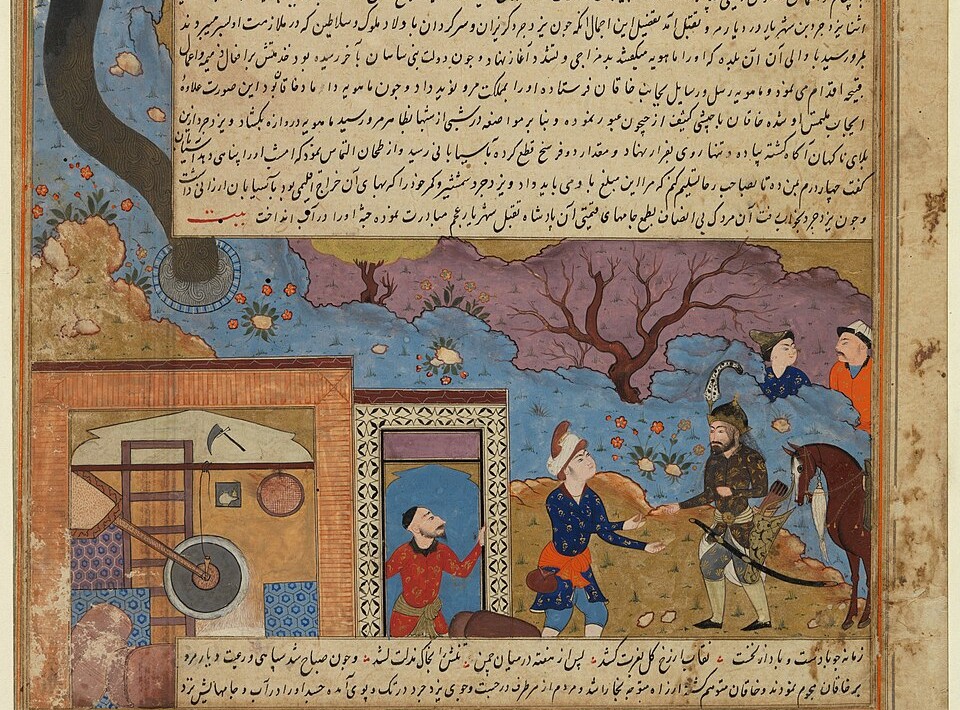 یزدجرد بن شهریار در دیار مرو بقتل آمد تفصیل این اجمال آنکه چون یزدجرد گریزان و سرگردان با اولاد ملوک و سلاطین که در ملازمت او بسر میبردند
بمرو رسید با والی آن بلده که او را ماهویه میگفتند بدمزاجی و تشدد آغاز نهاد و چون دولت بنی ساسان بآخر رسیده بود
قبیحه اقدام می نمود و ماهویه رسل و رسایل بجانب خاقان فرستاده او را بمملکت مرو نوید داد و چون ماهویه داماد خاقان بود این صورت علاوه
بملتمس او شده خاقان با جیشی کثیف از جیحون عبور نموده و بنا بر مواضعه در شبی از شبها بظاهر مرو رسید ماهویه دروازه بگشاد و یزدجرد ازین
بلای ناگهان آگاه گشته پیاده و تنها روی بفرار نهاد و مقدار دو فرسخ قطع کرده تا بآسیابانی رسید و از طحان التماس نمود که امشب او را پناهی دهد
گفت چهار درم بمن ده تا بصاحب رحا تسلیم کنم که مرا این مبلغ باو می باید داد و یزدجرد شمشیر و کمر خود را که بهای آن خراج اقلیمی بود بآسیابان ارزانی داشت
و چون یزدجرد بخواب رفت آن مردک بی انصاف بطمع جامهای قیمتی آن پادشاه بقتل شهریار عجم مبادرت نموده جثه او را در آب انداخت بیت
زمانه جو بادست و باد از نخست نقاب از رخ گل بعزت کشد پس از هفته در میان چمن تنش را بخاک مذلت کشد و چون صباح شد سپاهی و رعیت دیار مرو
بر خاقان هجوم نمودند و خاقان متوهم گشته از راه متوجه بخارا شد و مردم از هر طرف در جست و جوی یزدجرد در تک و پوی آمده جسد او را در آب و جامهایش نزد